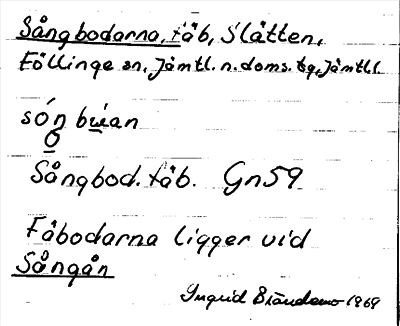 Sångbodarna, fäb, Slåtten,
Föllinge sn, Jämtl. n. doms. tg, Jämtl. l.
són búan
o
Sångbod. fäb. Gn59
Fäbodarna ligger vid
Sångån
Ingrid Brändemo 1969